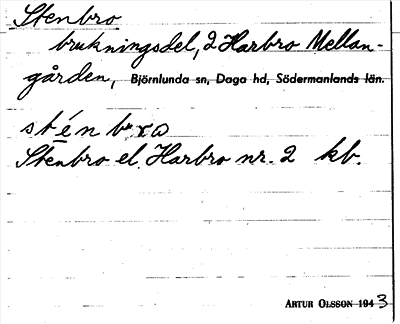 Stenbro
brukningsdel, 2 Harbro Mellan-
gården, Björnlunda sn, Daga hd, Södermanlands län.
Stenbro el. Harbro nr. 2 kb.
ARTUR OLSSON 1943